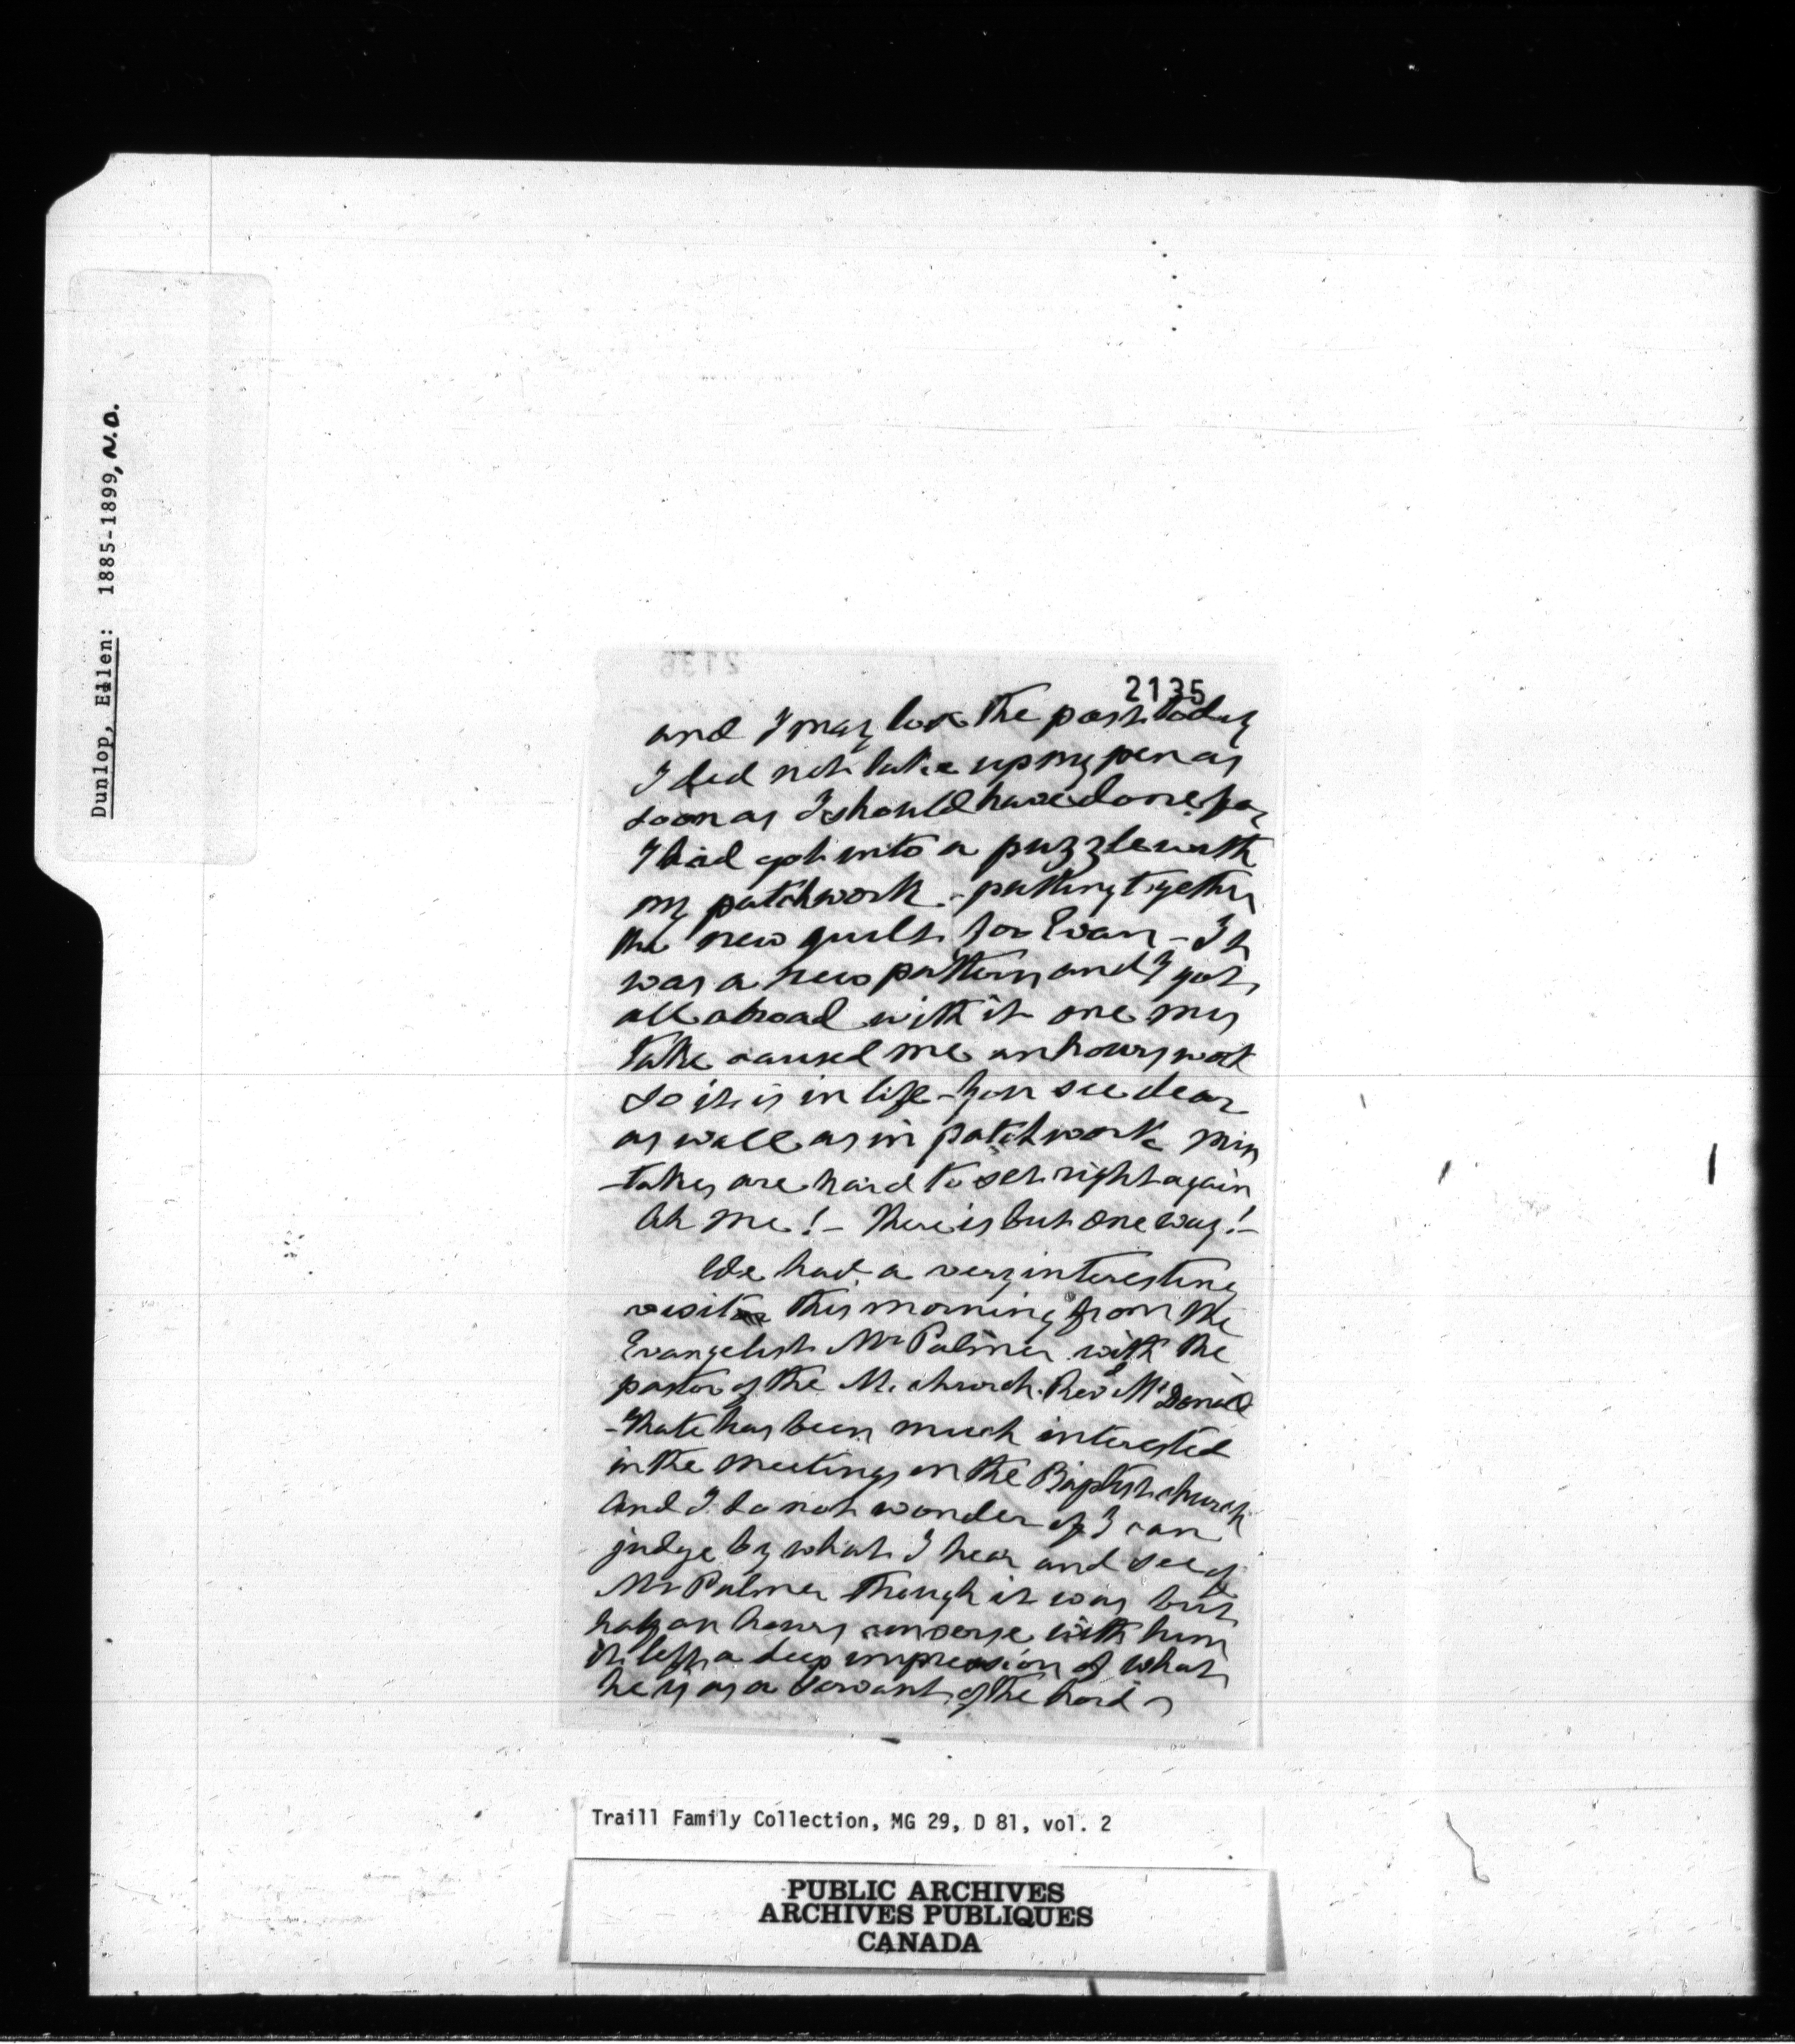 Dunlop, Ellen: 1885-1899, N.D.
2136
2135
and I may lose the post today
I did not take up my pen as
soon as I should have done for
I had got into a puzzle with
my patchwork - putting together
the new quilt for Evan - It
was a new pattern and I got
all abroad with it one mis
take caused me an hours work
So it is in life - you see dear
as well as in patchwork mis
-takes are hard to set right again
Ah me! - There is but one way! -
We had a very interesting
visit this morning from the
Evangelist Mr Palmer with the
pastor of the M. church. Revd Mr
- Kate has been much interested
in the meetings in the Baptist church
And I do not wonder if I can
judge by what I hear and see of
Mr Palmer though it was but
half an hours converse with him
it left a deep impression of what
he is as a Servant of the Lord
Traill Family Collection, MG 29, D 81, vol. 2
PUBLIC ARCHIVES
ARCHIVES PUBLIQUES
CANADA